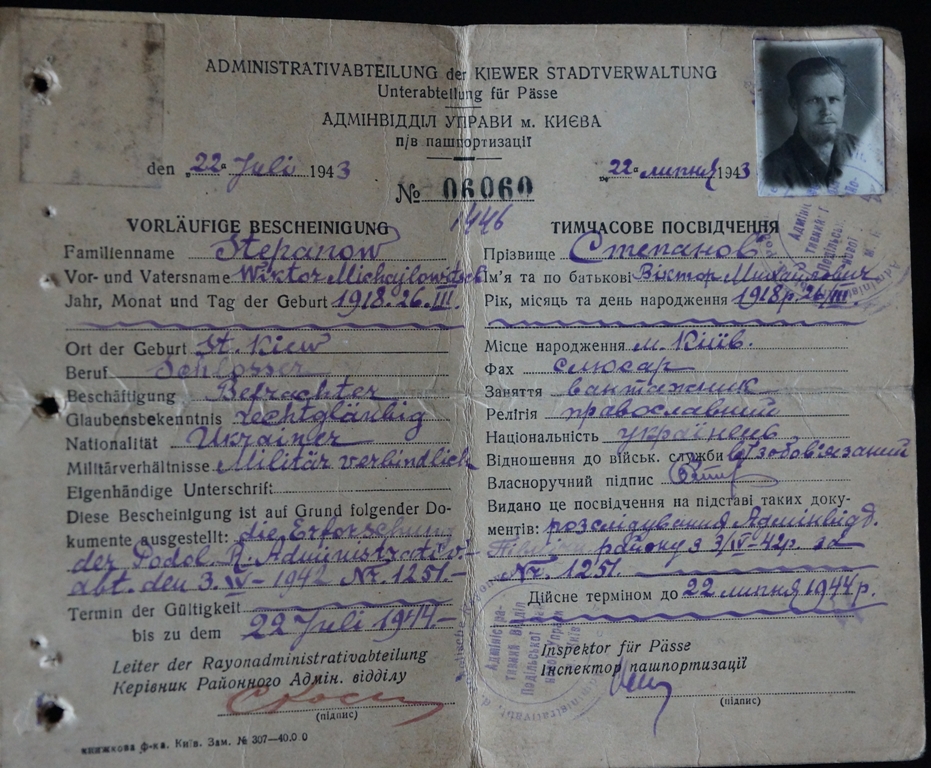 ADMINISTRATIVABTEILUNG der KIEWER STADTVERWALTUNG
Unterabteilung für Pässe
АДМІНВІДДІЛ УПРАВИ м. КИЄВА
п/в пашпортизації
den „22" Juli 1943
„22" липня 1943
№ 06060
1446
VORLÄUFIGE BESCHEINIGUNG
Familienname Stepanow
Vor- und Vatersname Wiktor Michajlowitsch
Jahr, Monat und Tag der Geburt 1918. 26. III.
Ort der Geburt St. Kiew
Beruf Schlosser
Beschäftigung Befrachter
Glaubensbekenntnis rechtgläubig
Nationalität Ukrainer
Militärverhältnisse Militär verbindlich
Eigenhändige Unterschrift
Diese Bescheinigung ist auf Grund folgender Do-
kumente ausgestellt: die Erforschung
der Podol. R. Administrativ.-
abt. den 3. IV – 1942 Nr. 1251.–
Termin der Gültigkeit
bis zu dem 22 Juli 1944–
Leiter der Rayonadministrativabteilung
Керівник Районного Адмін. відділу
(підпис)
книжкова ф-ка. Київ. Зам. № 307—40.0 0
ТИМЧАСОВЕ ПОСВІДЧЕННЯ
Прізвище Степанов
Ім'я та по батькові Віктор Михайлович
Рік, місяць та день народження 1918 р. 26/III.
Місце народження м. Київ.
Фах слюсар
Заняття вантажник
Релігія православний
Національність українець
Відношення до військ. служби в/зобов'язаний
Власноручний підпис
Видано це посвідчення на підставі таких доку-
ментів: розслідування Адмінвідд.
району з 3/IV-42р. за
Nr. 1251.
Дійсне терміном до 22 липня 1944 р.
Inspektor für Pässe
Інспектор пашпортизації
(підпис)
Адміністра-
тивний Відділ
Подільської